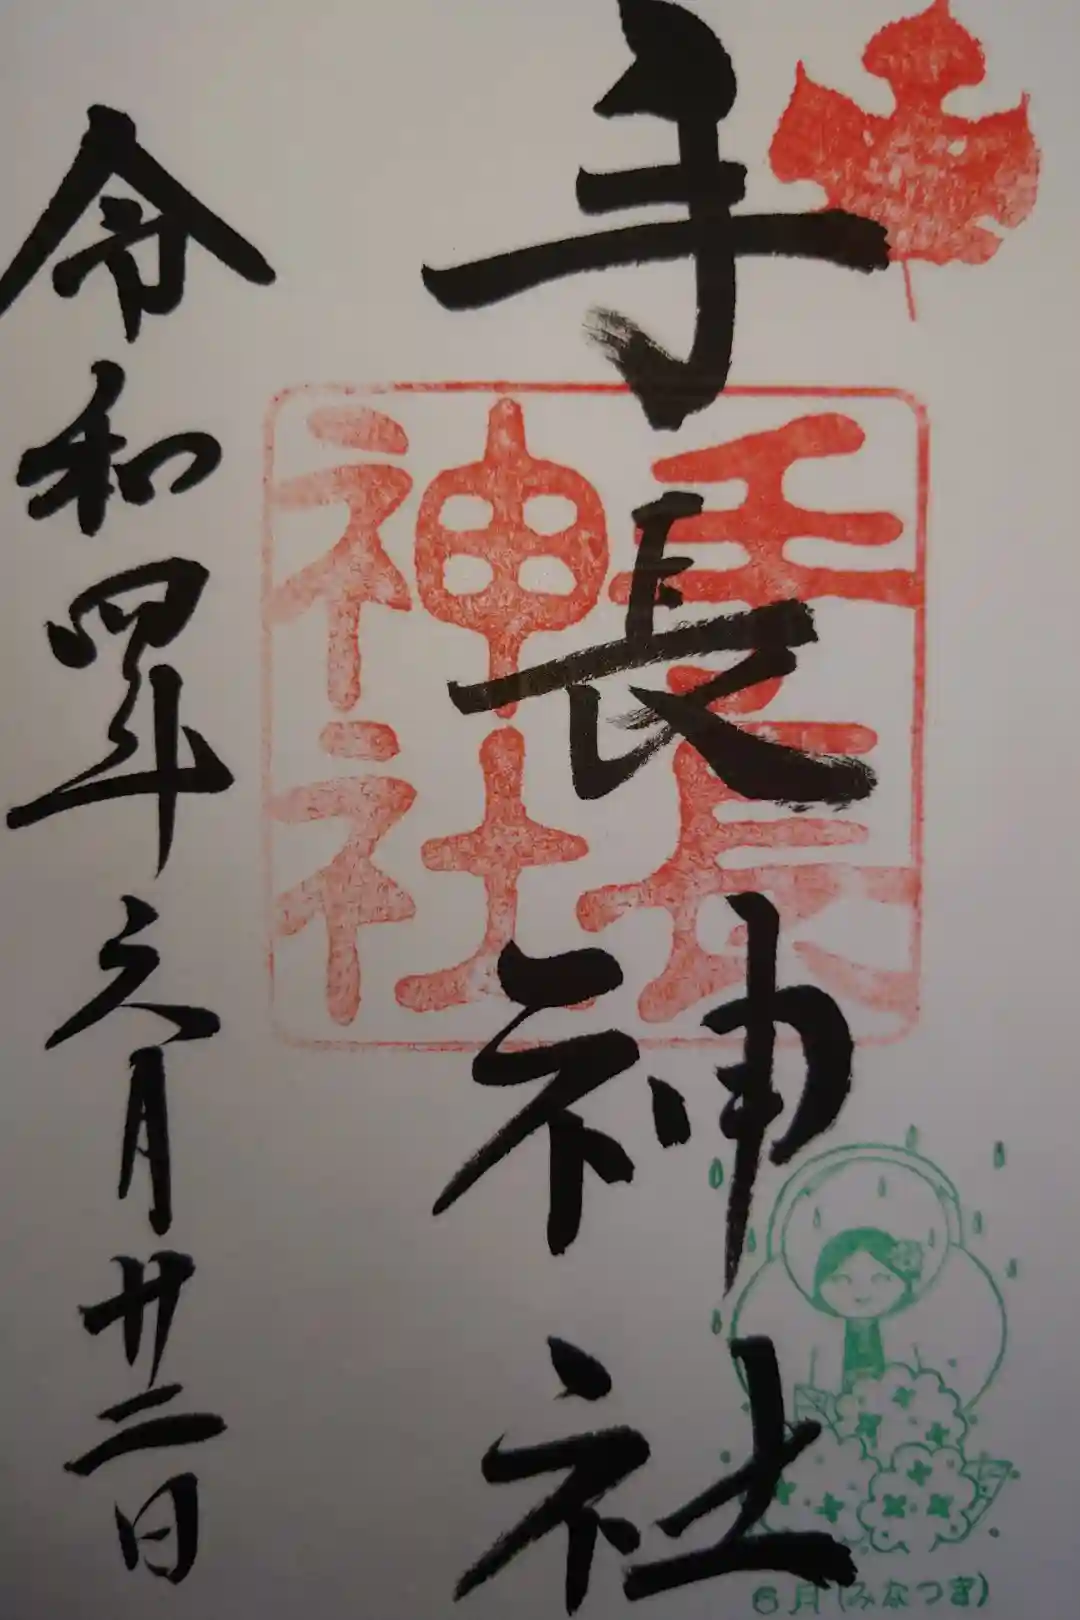 手長神社
手長
神社
令和四年六月廿二日
6月(みなつき)